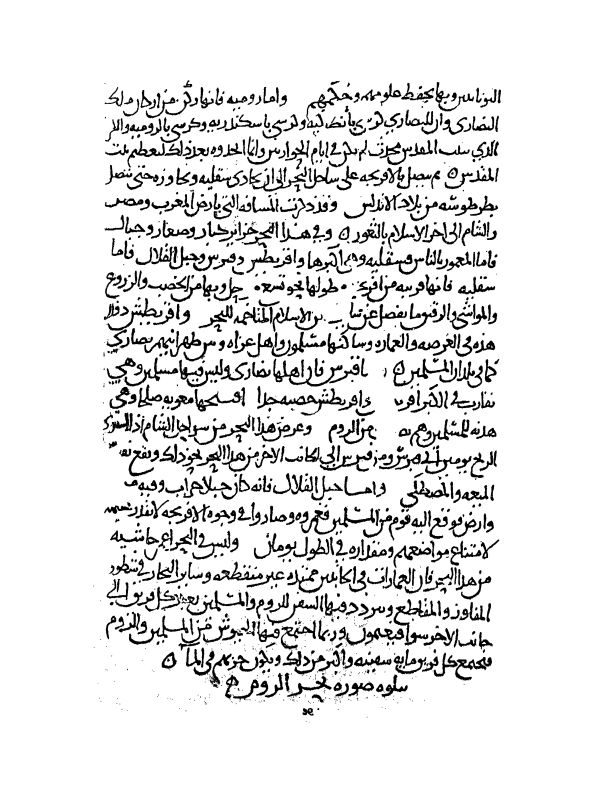 اليونانيين وبها يحفظ علومهم وحكمهم وامارومية فانها ركن من اركان ملك
النصارى وان للنصارى كرسي بانطاكيه وكرسي باسكندريه وكرسي بالروميه والكرسي
الذي ببيت المقدس محدث لم يكن في ايام الحواريين وانما اتخذوه بعد ذلك لتعظيم بيت
المقدس ثم يتصل بالافرنجه على ساحل البحر الى ان يحاذي سقليه ويجاوزه حتى يتصل
بطرطوشه من بلاد الاندلس وقد ذكرت المسافه التي بارض المغرب ومصر
والشام الى اخر الاسلام بالثغور وفي هذا البحر جزائر كبار وصغار وجبال
فاما المعمور بالناس فسقليه وهي اكبرها واقريطش وقبرس وجبل القلال فاما
سقليه فانها قريبه من افرنجه طولها نحو تسع وبها من الخصب والزروع
والمواشي والرقيق ما يفضل عن بن الاسلام المتاخمه للبحر واقريطش دون
هذه في العرضه والعماره وساكنها مسلمون واهل غزاه وبين ظهرانيهم نصارى
كما في بلدان المسلمين قبرس فان اهلها نصارى وليس فيها مسلمين وهي
تقارب في الكبر اقريطش خصبه جدا افتتحها معويه صلحا وهي
هدنه للمسلمين وهم من الروم وعرض هذا البحر من سواحل الشام اذا استوت
الريح يومين الى قبرس ومن قبرس الى الجانب الاخر من هذا البحر نحو ذلك ويقع
الميعه والمصطكى واما جبل القلال فانه كان جبلا خراب وفيه
وارض فوقع اليه قوم من المسلمين فعمروه وصاروا في وجوه الافرنجه لا يقدر
لامتناع مواضعهم ومقداره في الطول يومان وليس في البحر اعمر حاشيه
من هذا البحر فان العمارات في الجانبين ممتده غير منقطعه وسائر البحار في شطوطها
المفاوز والمقاطع ويتردد فيها السفن للروم والمسلمين يعبر كل فريق الى
جانب الاخر سواء فيغنمون وربما اجتمع فيها الجيوش من المسلمين والروم
فيجتمع لكل فريق مايه سفينه واكثر من ذلك ويكون حربهم في الماء
يتلوه صوره بحر الروم